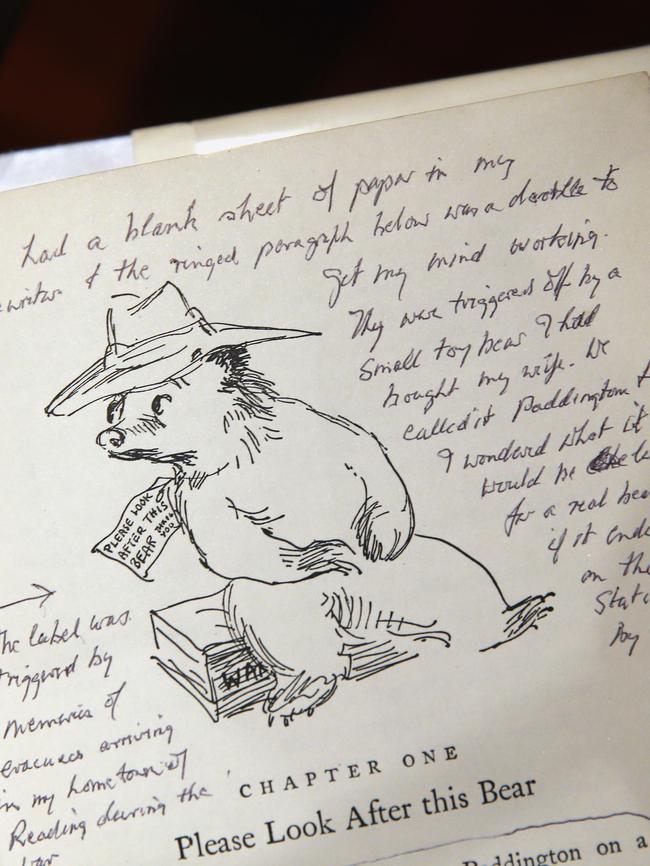 had a blank sheet of paper in my
ewriter & the ringed paragraph below was a doodle to
get my mind working.
They were triggered off by a
small toy bear I had
bought my wife. We
called it Paddington &
I wondered what it
would be like
for a real bear
if it ende
on the
Stati
By
PLEASE LOOK
AFTER THIS
BEAR THANK
YOU
WAN
The label was
triggered by
memories of
evacuees arriving
in my hometown of
Reading during the
War
CHAPTER ONE
Please Look After this Bear
Paddington on a